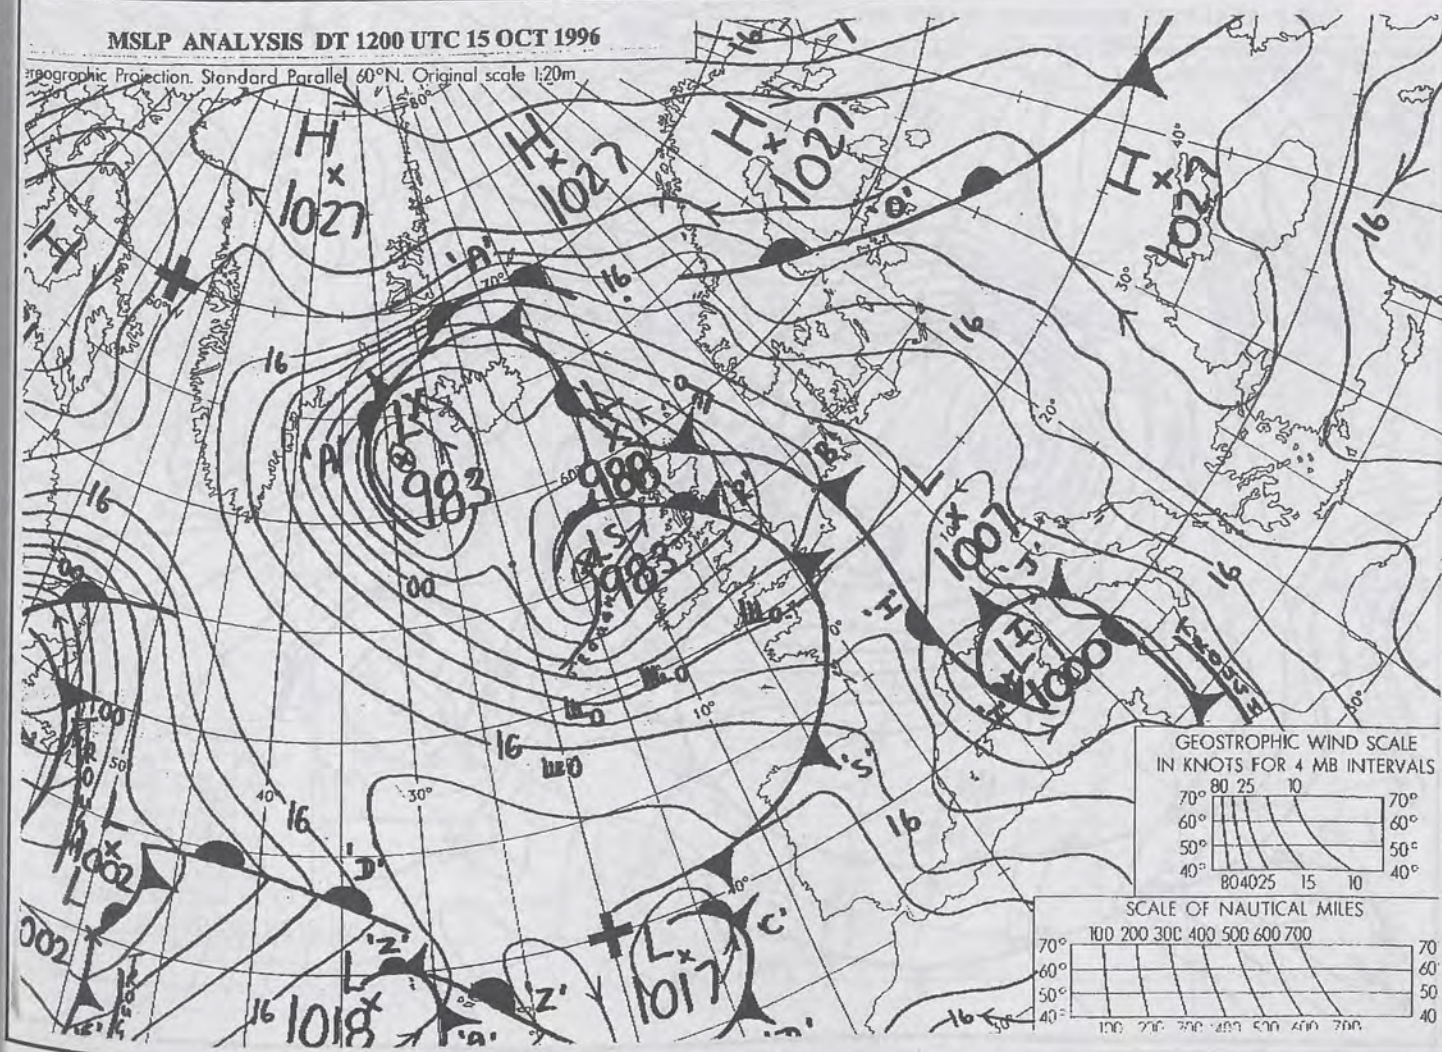 MSLP ANALYSIS DT 1200 UTC 15 OCT 1996
Projection. Standard Parallel 60°N. Original scale 1:20m
80°
H
1027
H
1027
H
1027
H
1027
H
40°
16
'O'
'A'
70°
16
16
30°
60°
16
20°
'A'
L
983
988
60°
'B'
'R'
L
1007
16
'J'
16
00
00
L
983
'H'
0°
L
1000
TROUGH
30°
00
TROUGH
50°
10°
16
'S'
40°
16
30°
16
'D'
L
1002
L
002
'Z'
L
1018
16
'Z'
L
1017
'C'
10°
16
GEOSTROPHIC WIND SCALE
IN KNOTS FOR 4 MB INTERVALS
80 25 10
70° 70°
60° 60°
50° 50°
40° 40°
80 40 25 15 10
SCALE OF NAUTICAL MILES
100 200 300 400 500 600 700
70° 70
60° 60
50° 50
40° 40
100 200 300 400 500 600 700